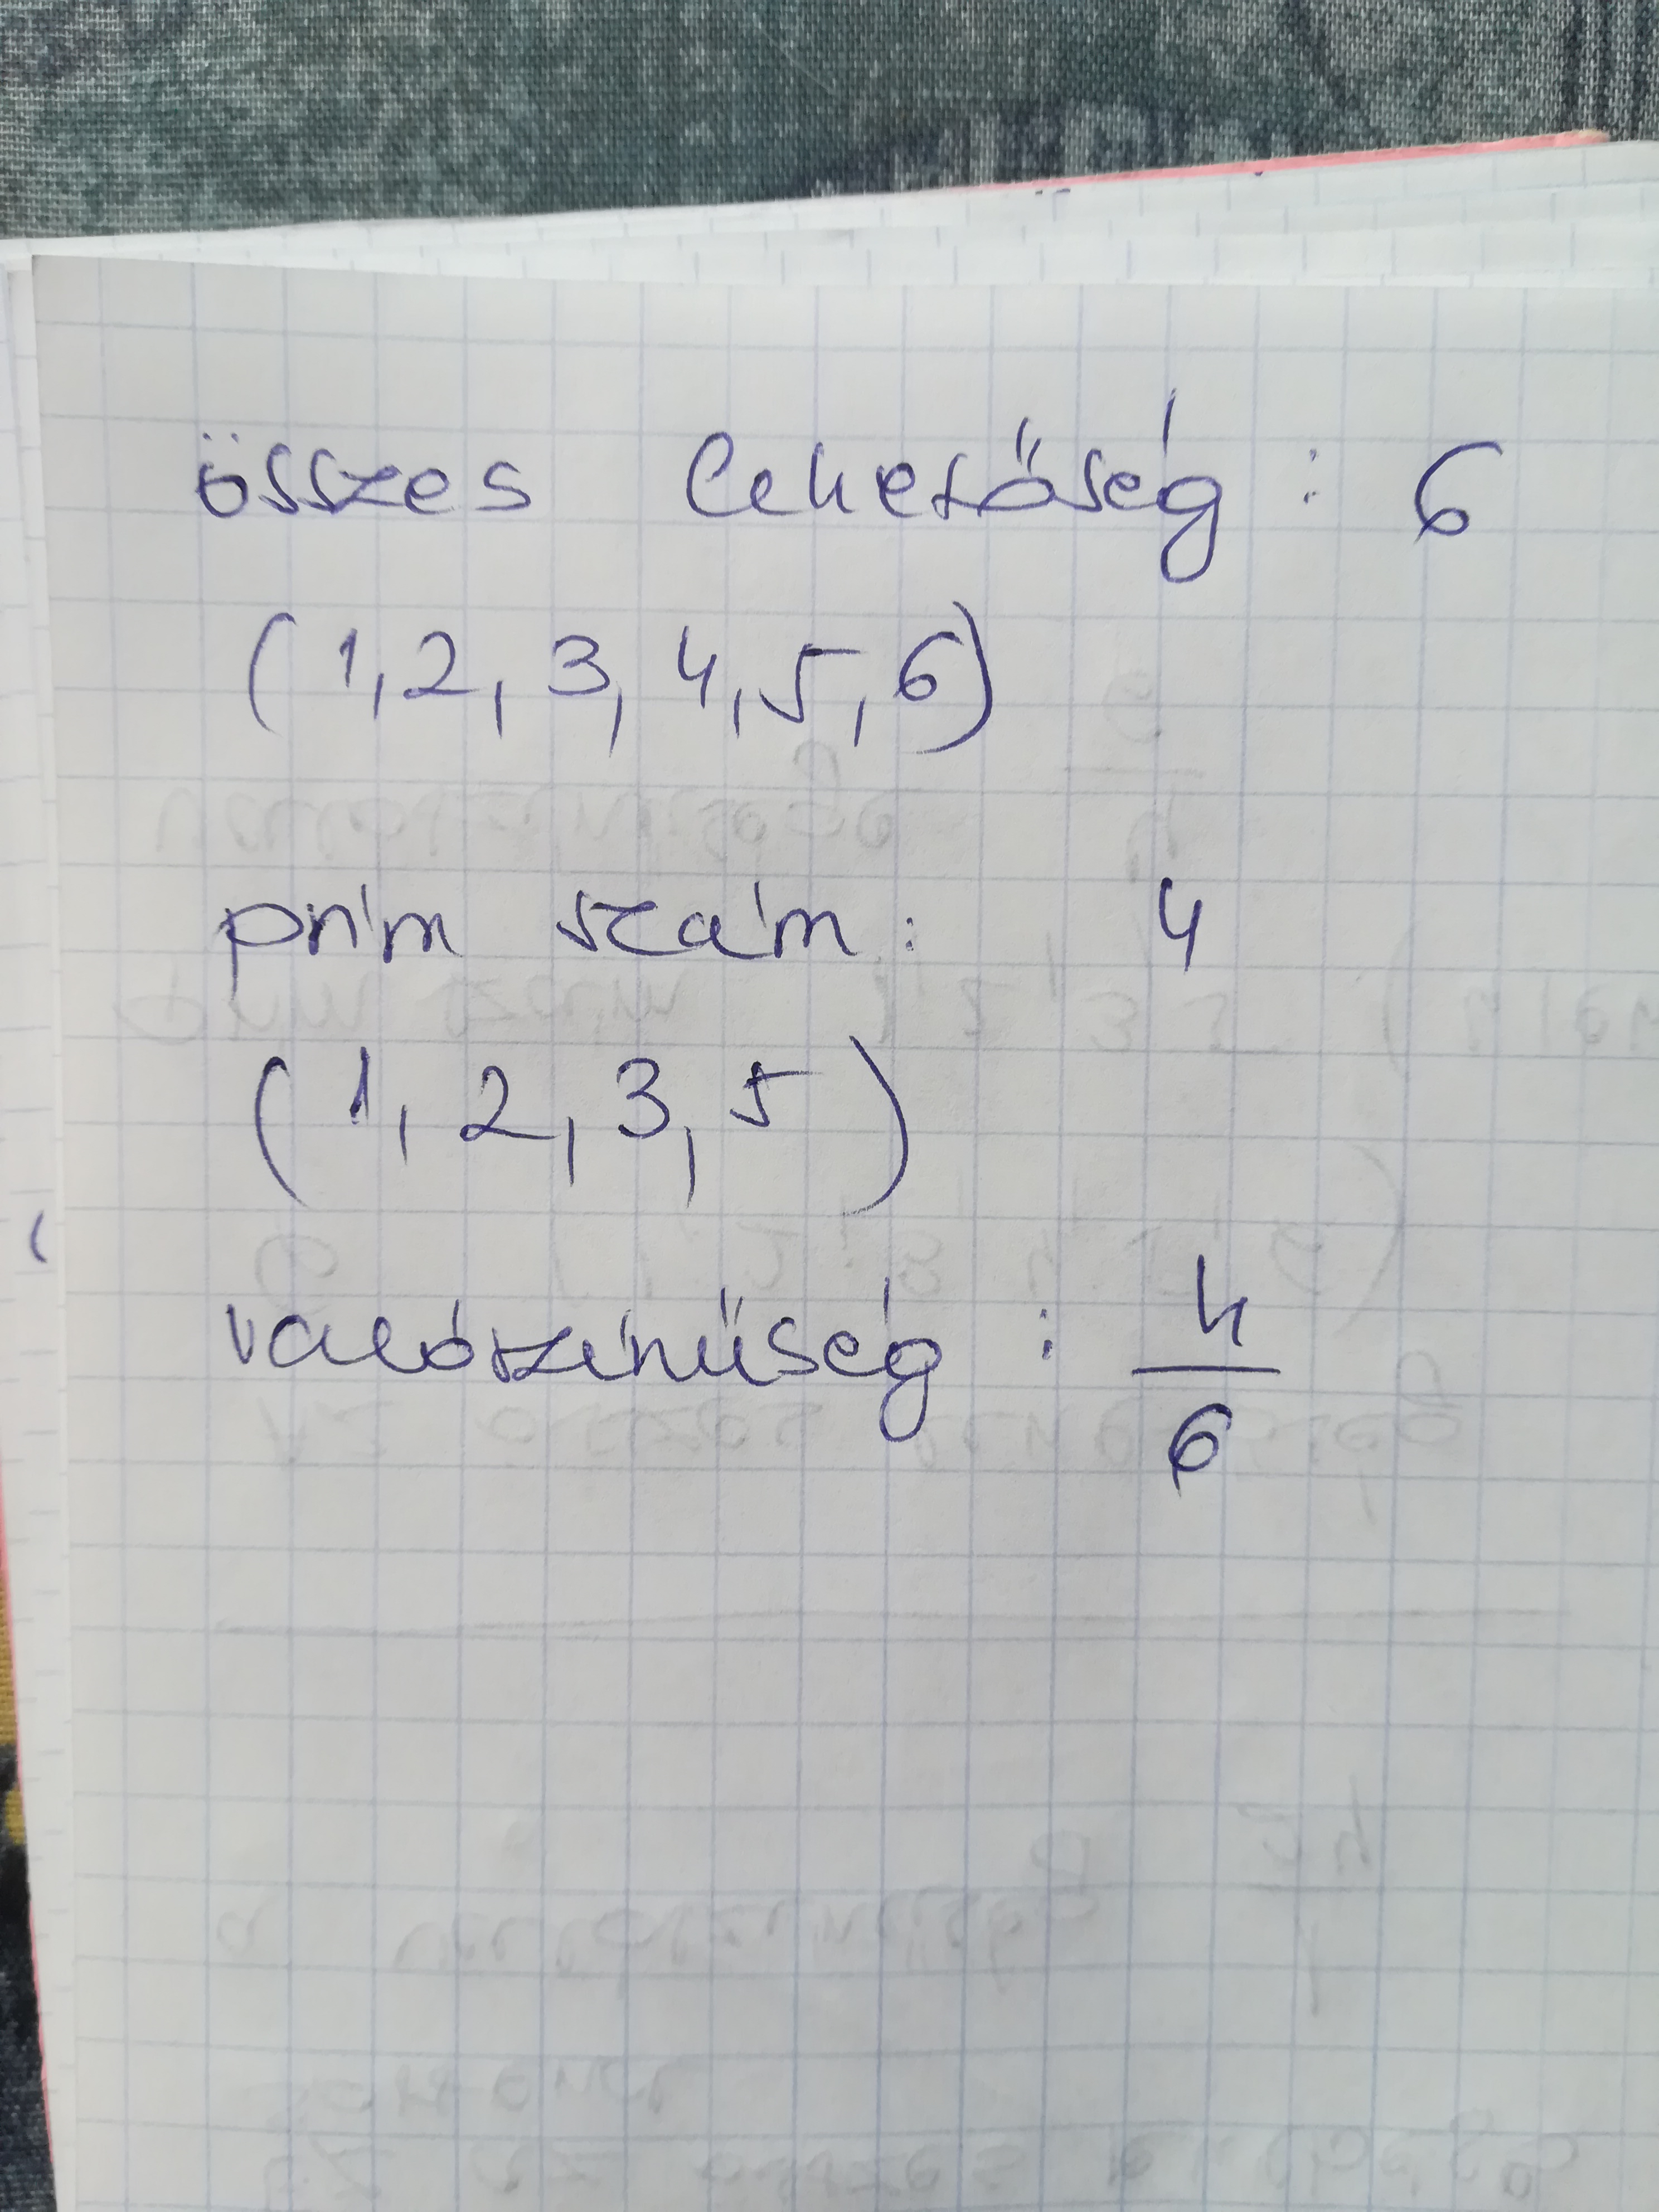 összes lehetőség : 6
(1, 2, 3, 4, 5, 6)
prím szám : 4
(1, 2, 3, 5)
valószínűség : 4/6